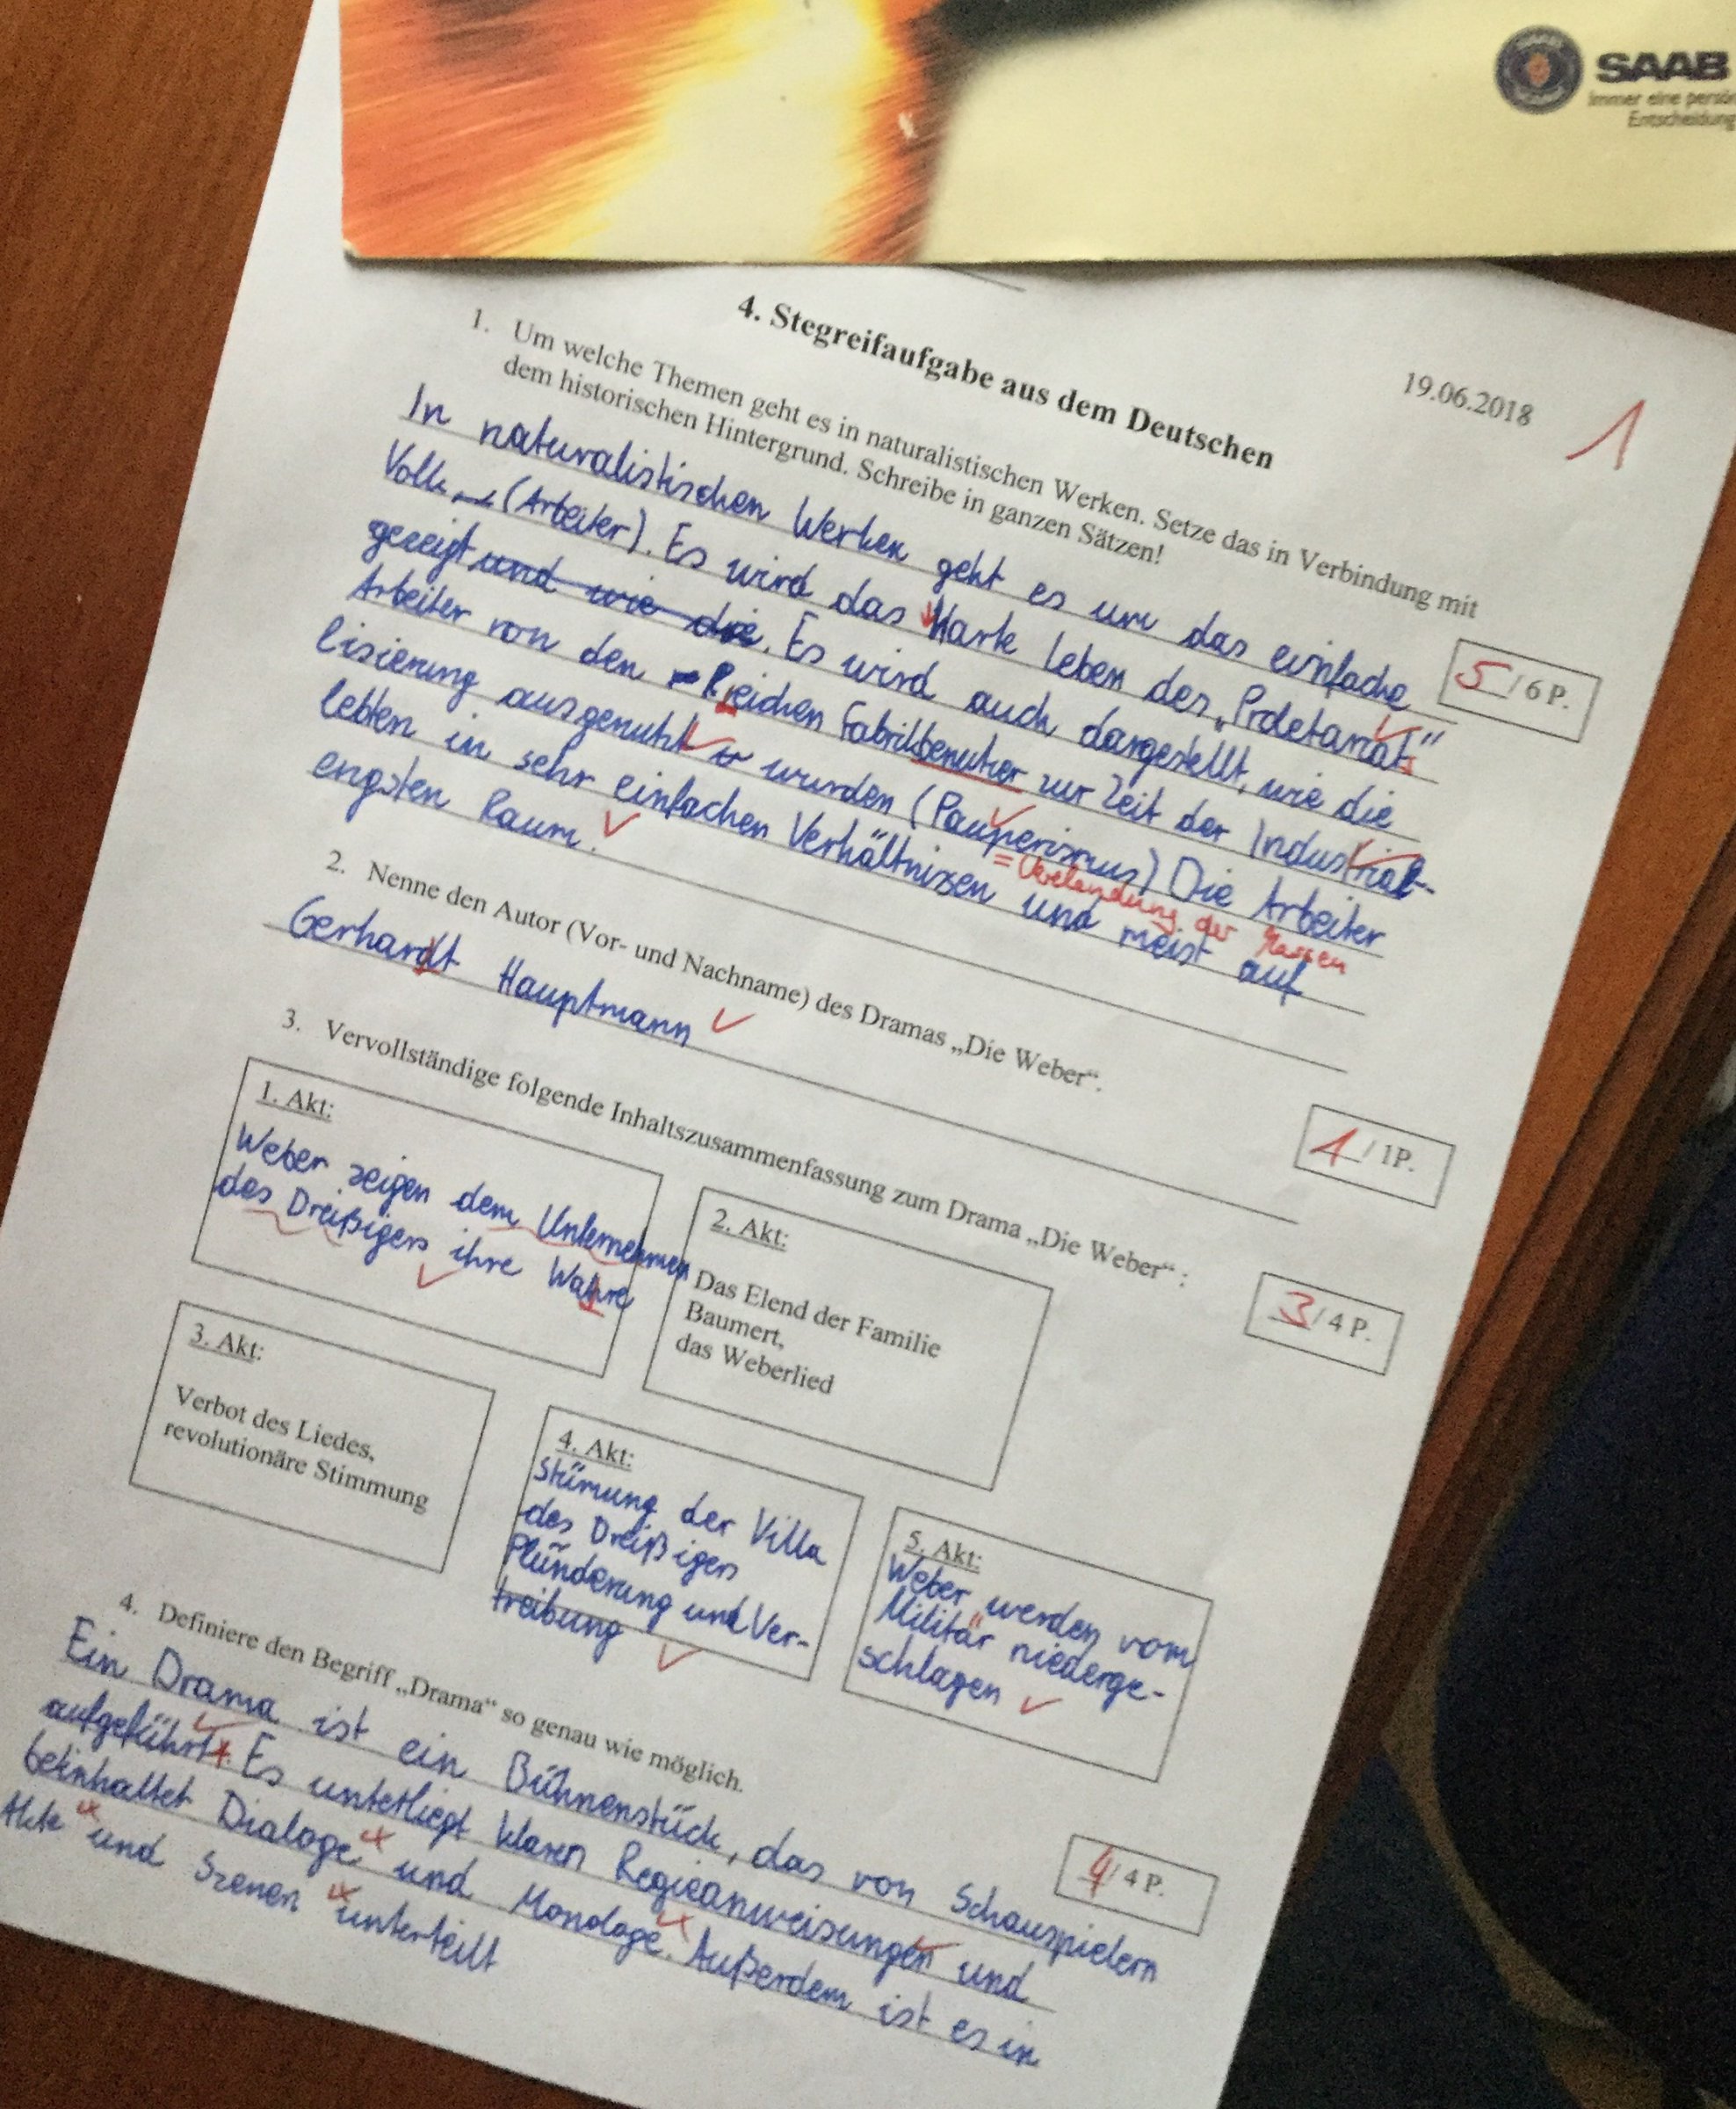 SAAB
Immer eine persön
Entscheidung
19.06.2018
1
4. Stegreifaufgabe aus dem Deutschen
1. Um welche Themen geht es in naturalistischen Werken. Setze das in Verbindung mit
dem historischen Hintergrund. Schreibe in ganzen Sätzen!
5/6 P.
In naturalistischen Werken geht es um das einfache
Volk (Arbeiter). Es wird das Harte Leben des „Proletariats"
gezeigt und wie die. Es wird auch dargestellt, wie die
Arbeiter von den Reichen Fabrikbenutzer zur Zeit der Industrial-
lisierung ausgenutzt wurden (Pauperismus) Die Arbeiter
= Verelendung der Massen
lebten in sehr einfachen Verhältnissen und meist auf
engsten Raum.
2. Nenne den Autor (Vor- und Nachname) des Dramas „Die Weber“.
1/1P.
Gerhardt Hauptmann
3. Vervollständige folgende Inhaltszusammenfassung zum Drama „Die Weber“ :
3/4 P.
1. Akt:
Weber zeigen dem Unternehmen
des Dreißigers ihre Wahre
2. Akt:
Das Elend der Familie
Baumert,
das Weberlied
3. Akt:
Verbot des Liedes,
revolutionäre Stimmung
4. Akt:
Stürmung der Villa
des Dreißigers
Plünderung und Ver-
treibung
5. Akt:
Weber werden vom
Militär niederge-
schlagen
4. Definiere den Begriff „Drama“ so genau wie möglich.
4/4 P.
Ein Drama ist ein Bühnenstück, das von Schauspielern
aufgeführt. Es unterliegt klaren Regieanweisungen und
beinhaltet Dialoge und Monologe. Außerdem ist es in
Akte und Szenen unterteilt